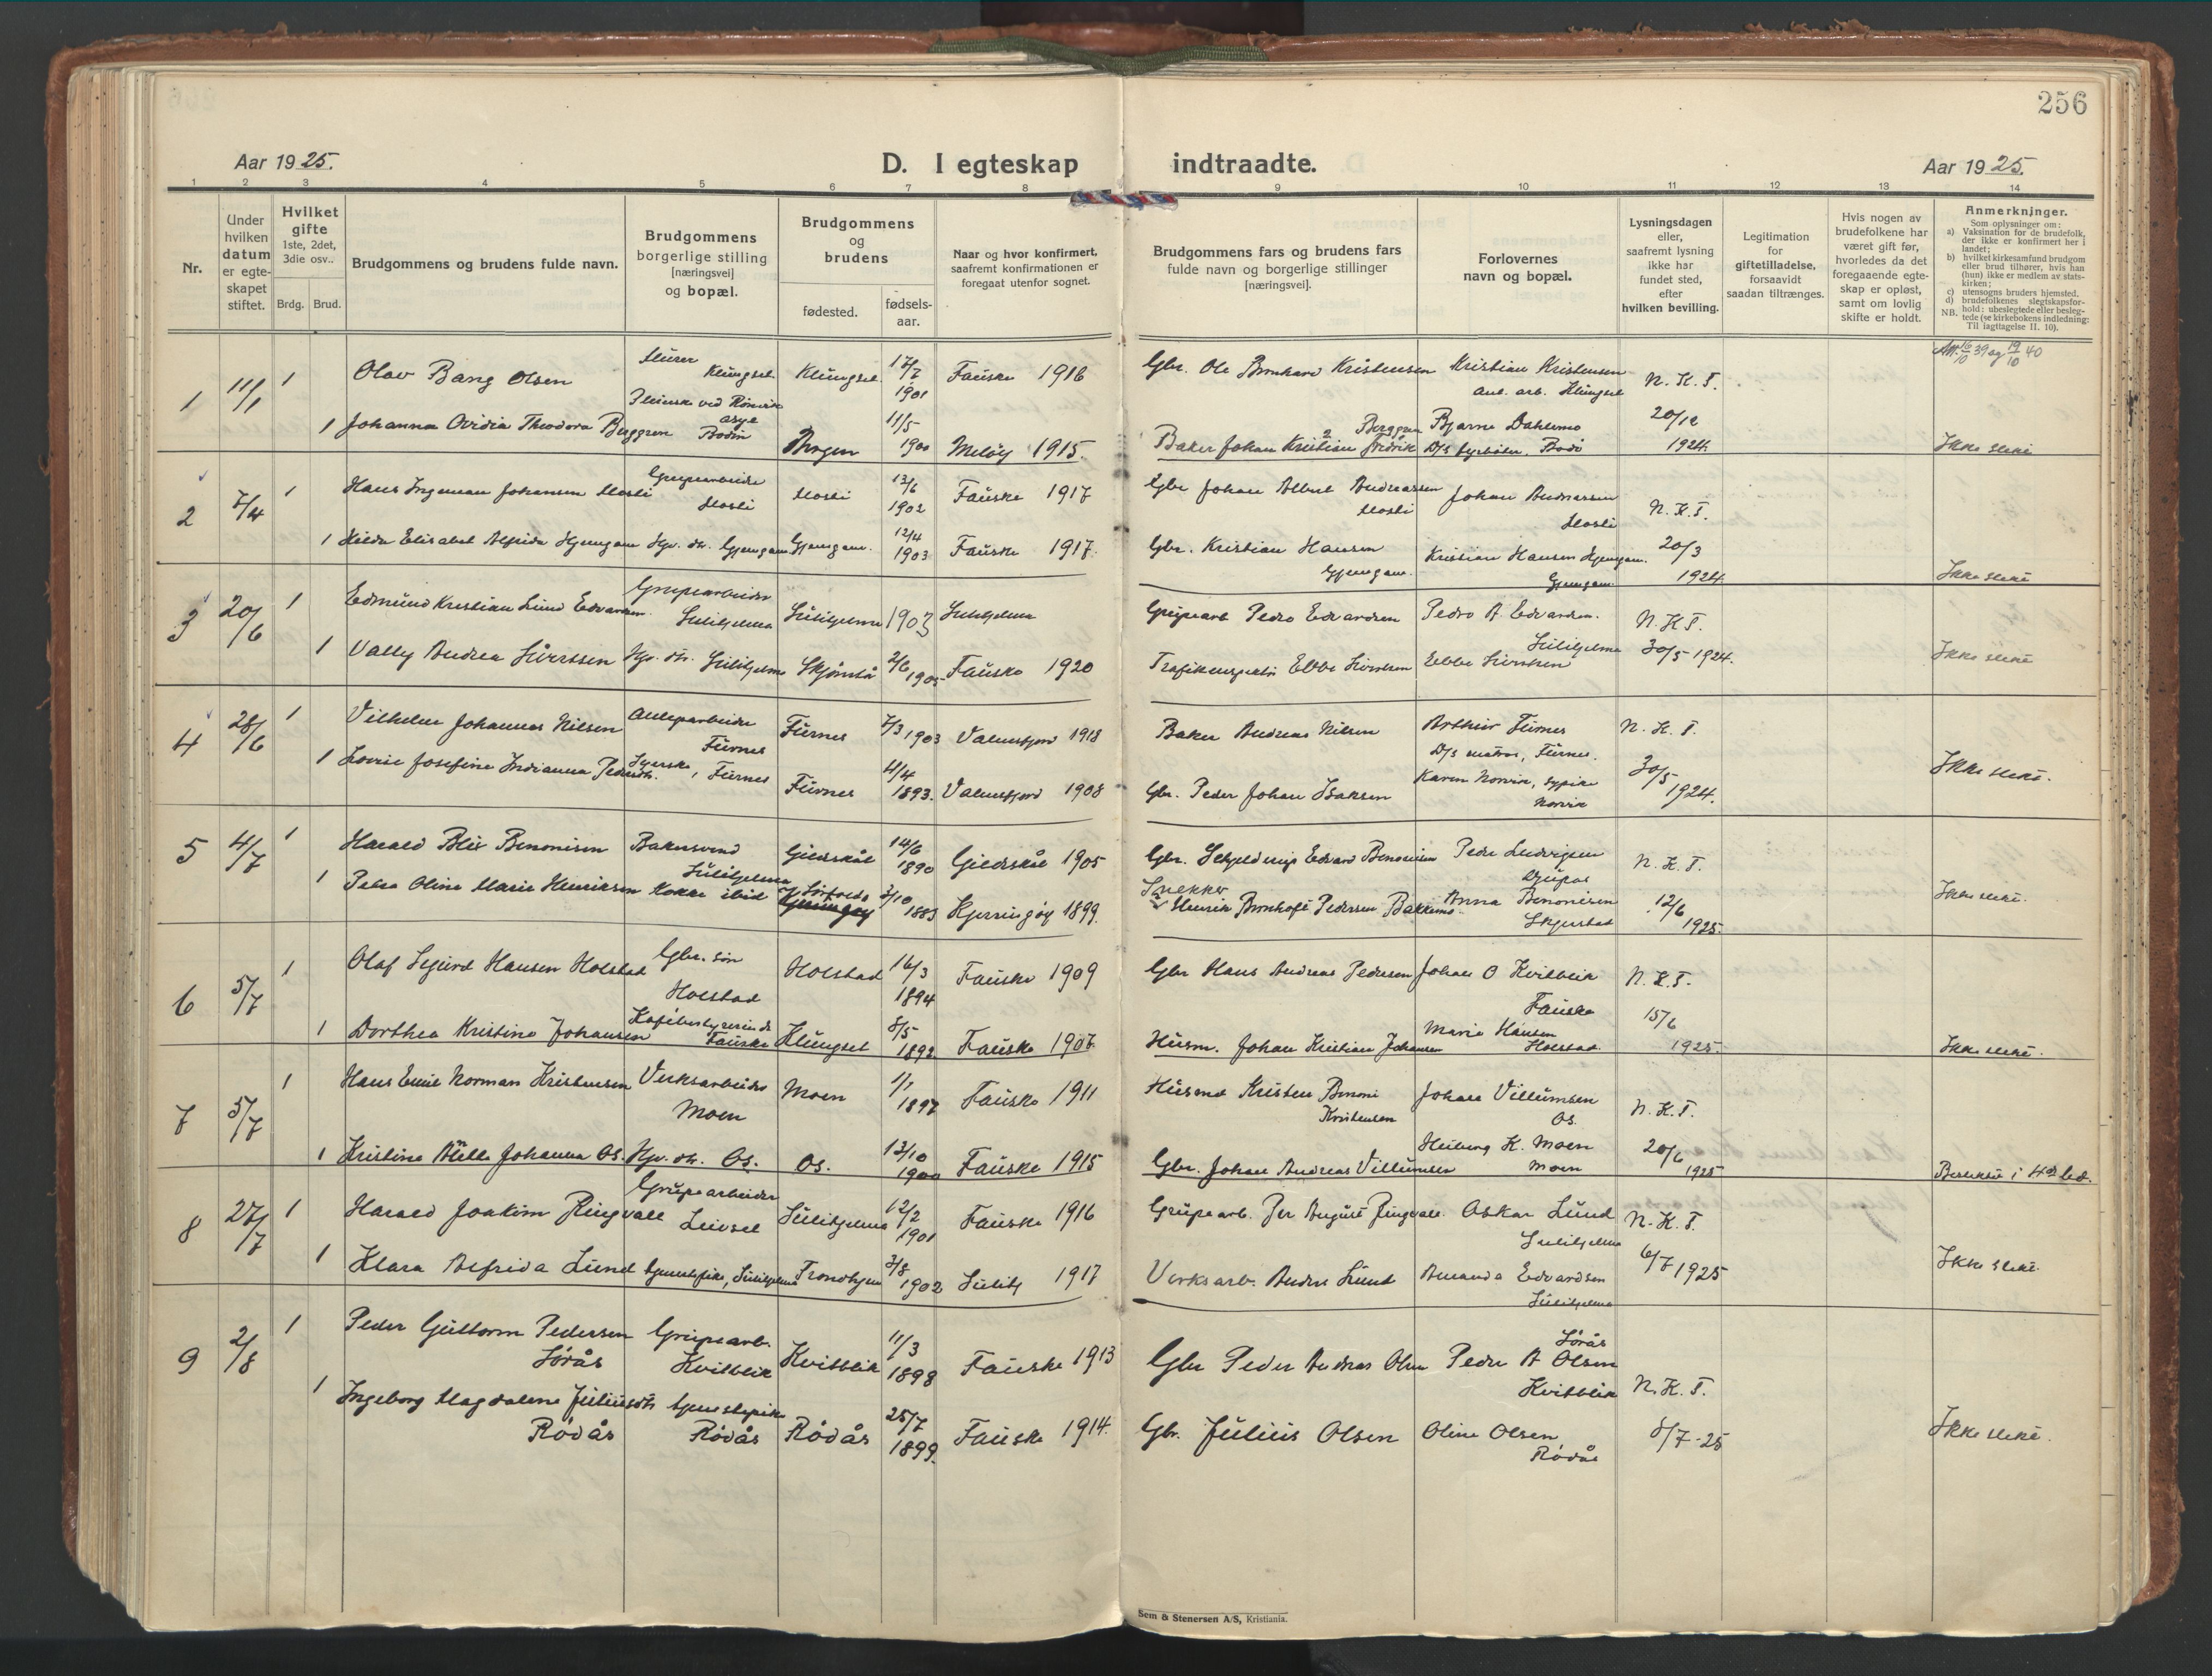 256
Aar 1925.
D. I egteskap indtraadte.
Aar 1925.
1 2 3 4 5 6 7 8 9 10 11 12 13 14
Nr.
Under hvilken datum er egte-skapet stiftet.
Hvilket gifte
1ste, 2det, 3die osv..
Brdg. Brud.
Brudgommens og brudens fulde navn.
Brudgommens borgerlige stilling [næringsvei] og bopæl.
Brudgommens og brudens
fødested.
fødsels-aar.
Naar og hvor konfirmert, saafremt konfirmationen er foregaat utenfor sognet.
Brudgommens fars og brudens fars fulde navn og borgerlige stillinger [næringsvei].
Forlovernes navn og bopæl.
Lysningsdagen eller, saafremt lysning ikke har fundet sted, efter hvilken bevilling.
Legitimation for giftetilladelse, forsaavidt saadan tiltrænges.
Hvis nogen av brudefolkene har været gift før, hvorledes da det foregaaende egte-skap er opløst, samt om lovlig skifte er holdt.
Anmerkninger.
Som oplysninger om:
a) Vaksination for de brudefolk, der ikke er konfirmert her i landet;
b) hvilket kirkesamfund brudgom eller brud tilhører, hvis han (hun) ikke er medlem av stats-kirken;
c) utensogns bruders hjemsted.
d) brudefolkenes slegtskapsfor-hold: ubeslegtede eller besleg-tede (se kirkebokens indledning:
NB. Til iagttagelse II. 10).
Att. 16/10 39 og 19/10 40
1 11/1 1 Olav Bang Olsen Murer Klungset Klungset 17/7 1901 Fauske 1916 Gbr. Ole Bernhard Kristensen Kristian Kristensen anl. arb. Klungset N.K.T.
1 Johanna Ovidia Theodora Berggren Pleierske ved Rønvik asyl Bodin Mogen 11/5 1900 Meløy 1915. Baker Johan Kristian Fredrik Berggren Bjarne Dahlemo D/S fyrbøter, Bodø 20/12 1924 Ikke slekt
2 7/4 1 Hans Ingeman Johansen Mosti Grupearbeider Mosti Mosti 13/6 1902 Fauske 1917 Gbr Johan Albert Andreassen Mosti Johan Andreassen Mosti N.K.T.
1 Hilda Elisabet Alfrida Gjemgam Hjv. dtr. Gjemgam Gjemgam. 12/4 1903 Fauske 1917. Gbr. Kristian Hansen Gjemgam. Kristian Hansen Gjemgam. 20/3 1924 Ikke slekt
3 20/6 1 Edmund Kristian Lund Edvardsen Grupearbeider Sulitjelma Sulitjelma 1903 Sulitjelma Grupearb Pedro Edvardsen Pedro A. Edvardsen. Sulitjelma N.K.T.
1 Vally Andrea Sivertsen Hjv. dtr. Sulitjelma Skjönstå 2/6 1905 Fauske 1920 Trafikinspektør Ebbe Sivertsen Ebbe Sivertsen 30/5 1924. Ikke slekt
4 28/6 1 Vilhelm Johannes Nilsen Anlegsarbeider Furnes Furnes 7/3 1903 Valnesfjord 1918 Baker Andreas Nilsen Arthur Furnes D/S matros, Furnes. N.K.T.
1 Lovise Josefine Indianna Pedersdtr. Syerske, Furnes Furnes 4/4 1893. Valnesfjord 1908 Gbr. Peder Johan Isaksen Karen Norvik, sypike Norvik 30/5 1924. Ikke slekt.
5 4/7 1 Harald Blix Benonisen Bakersvend Sulitjelma Gildeskål 14/6 1890 Gildeskål 1905 Gbr. Schjelderup Edvard Benonisen Peder Ludvigsen Djupos N.K.T.
1 Petra Oline Marie Henriksen Kokke ibid Sörfolda 3/10 1883 Kjerringøy 1899. Snekker Henrik Bernhoft Pedersen Bakkemo Anna Benonisen Skjerstad 12/6 1925. Ikke slekt.
6 5/7 1 Olaf Sigurd Hansen Holstad Gbr. søn Holstad Holstad 16/3 1894 Fauske 1909 Gbr Hans Andreas Pedersen Johan O Kvitblik Fauske N.K.T.
1 Dorthea Kristine Johansen Kafébestyrerinde Fauske Klungset 8/5 1892 Fauske 1907. Husm. Johan Kristian Johansen Marie Hansen Holstad 15/6 1925. Ikke slekt.
7 5/7 1 Hans Emil Norman Kristensen Verksarbeider Moen Moen 1/1 1897 Fauske 1911 Husmd Kristen Benoni Kristensen Johan Villumsen Os. N.K.T.
1 Kristine Mille Johanna Os. Hjv. dtr. Os. Os. 13/10 1900 Fauske 1915 Gbr. Johan Andreas Villumsen Heiberg K. Moen Moen 20/6 1925 Beslektet i 4de led.
8 27/7 1 Harald Joakim Ringvall Grupearbeider Leivset Sulitjelma 12/2 1901 Fauske 1916 Grupearb. Per August Ringvall. Oskar Lund Sulitjelma N.K.T.
1 Klara Alfrida Lund tjenestepike, Sulitjelma Trondhjem 3/8 1902 Sulitj 1917 Verksarb. Anders Lund Amanda Edvardsen Sulitjelma 6/7 1925 Ikke slekt.
9 2/8 1 Peder Guttorm Pedersen Sörås Grupearb. Kvitblik Kvitblik 11/3 1898 Fauske 1913 Gbr Peder Andreas Olsen Peder A Olsen Sörås Kvitblik N.K.T.
1 Ingeborg Magdalene Juliusdtr Rödås tjenestepike Rödås Rödås 25/7 1899. Fauske 1914. Gbr. Julius Olsen Oline Olsen Rödås 8/7-25 Ikke slekt.
Sem & Stenersen A/S, Kristiania.